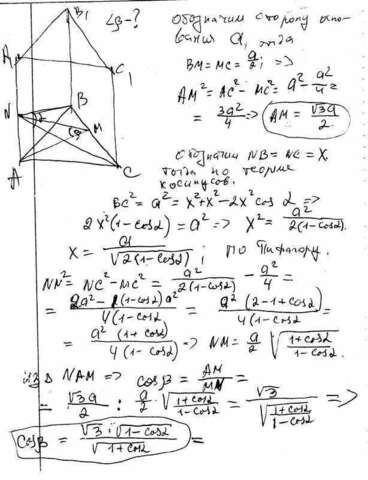 ∠β-?
обозначим сторону осно-
вания a, тогда
BM=MC=a/2; =>
AM²=AC²-MC²=a²-a²/4=
=3a²/4 => AM=√3a/2.
обозначим NB=NC=X,
тогда по теореме
косинусов.
BC²=a²=x²+x²-2x²cos α =>
2x²(1-cosα)=a² => x²=a²/2(1-cosα).
x=a/√2(1-cosα); по Пифагору.
NM²=NC²-MC²=a²/2(1-cosα)-a²/4=
=2a²-(1-cosα)a²/4(1-cosα)=a²(2-1+cosα)/4(1-cosα)=
=a²(1+cosα)/4(1-cosα) => NM=a/2√1+cosα/1-cosα.
из Δ NAM => cosβ=AM/MN=
=√3a/2 : a/2·√1+cosα/1-cosα=√3/√1+cosα/1-cosα =>
cosβ=√3·√1-cosα/√1+cosα=
B₁
A₁
C₁
N
α
B
β
M
A
C